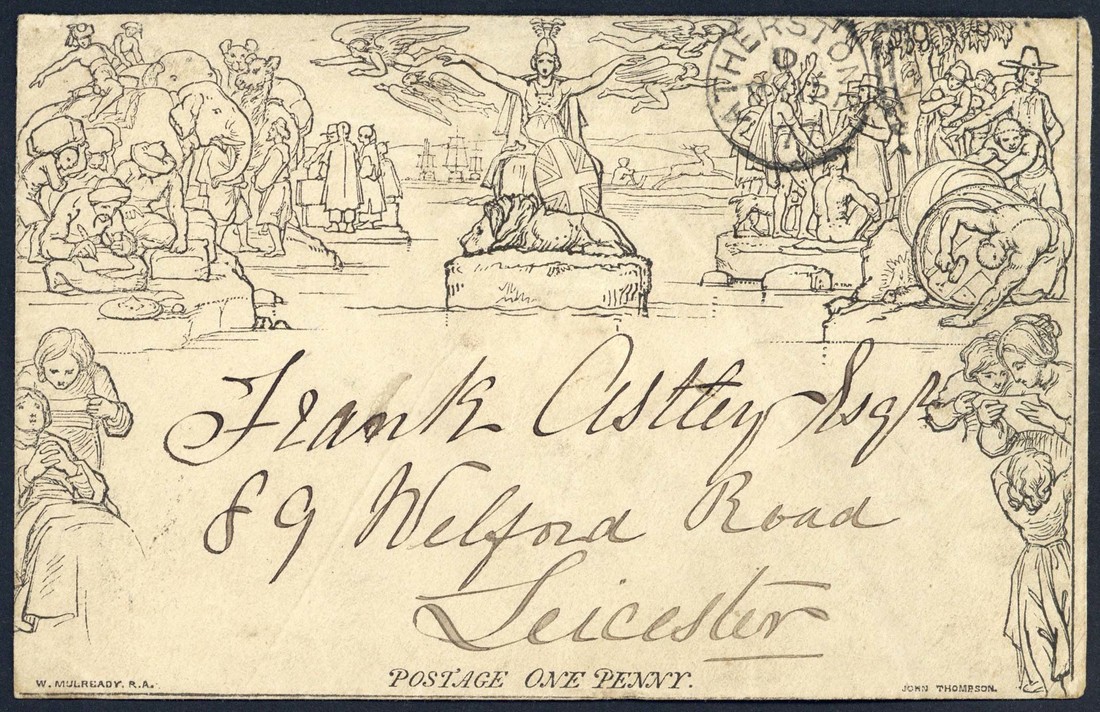 ATHERSTONE
D
Frank Astley Esqr
89 Welford Road
Leicester
POSTAGE ONE PENNY.
W. MULREADY. R.A.
JOHN THOMPSON.